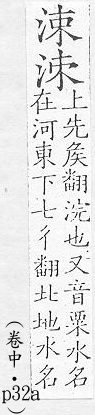 涑
洓
上先矦翻浣也又音粟水名
在河東下七彳翻北地水名
（卷中·
p32a）